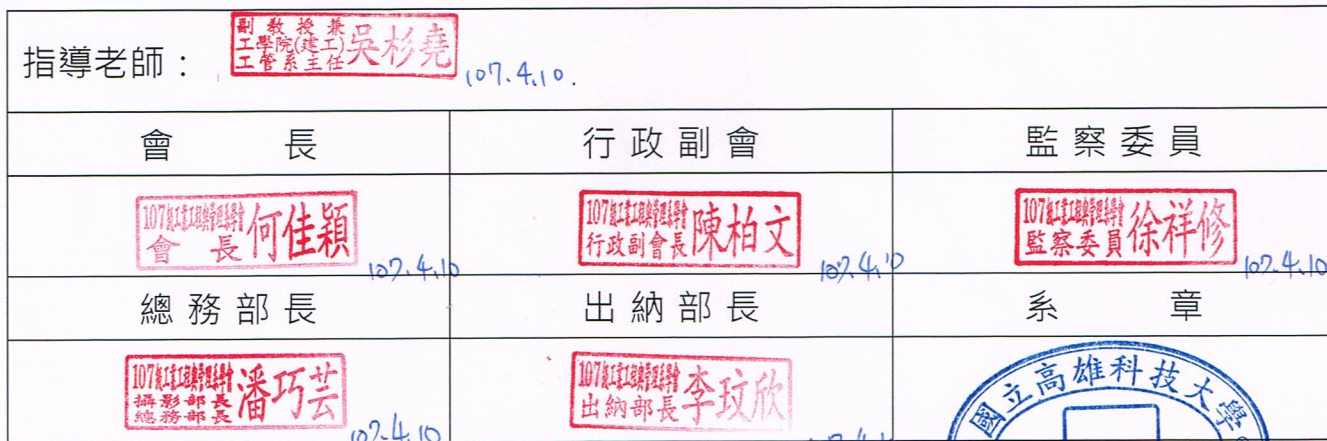 指導老師：
副教授兼
工學院(建工)
工管系主任
吳杉堯
107.4.10.
會長 行政副會 監察委員
107級工業工程與管理系學會
會長
何佳穎
107.4.10
107級工業工程與管理系學會
行政副會長
陳柏文
107.4.10
107級工業工程與管理系學會
監察委員
徐祥修
107.4.10
總務部長 出納部長 系章
107級工業工程與管理系學會
攝影部長
總務部長
潘巧芸
107.4.10
107級工業工程與管理系學會
出納部長
李玟欣
國立高雄科技大學